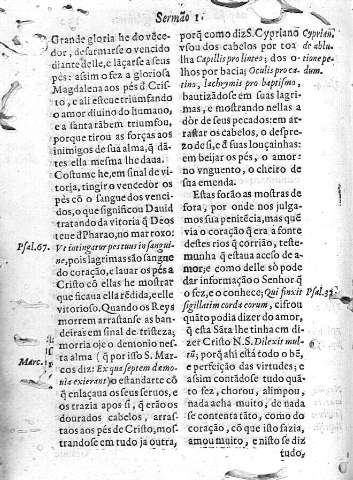 Sermão 1.
Grande gloria he do vẽce-
dor, desarmarse o vencido
diante delle, e lãçarse a seus
pés: assim o fez a gloriosa
Magdalena aos pés đ Cris-
to, e ali esteue triumfando
o amor diuino do humano,
e a santa tãbem triumfou,
porque tirou as forças aos
inimigos de sua alma, q̃ dã-
tes ella mesma lhe daua.
Costume he, em sinal de vi-
toria, tingir o vencedor os
pés cõ o sangue dos venci-
dos, o que significou Dauid
tratando da vitoria q̃ Deos
teue đ Pharao, no mar roxo:
Psal. 67. Vt intingatur pes tuus in sangui-
ne, pois lagrimas são sangue
do coração, e lauar os pés a
Cristo cõ ellas he mostrar
que ficaua ella rẽdida, e elle
vitorioso. Quando os Reys
morrem arrastanse as ban-
deiras em sinal de tristeza;
morria oje o demonio nesta
alma (q̃ por isso S. Mar-
Marc. cos diz: Ex qua septem demo-
nia exierant) o estandarte cõ
q̃ enlaçaua os seus seruos, e
os trazia apos si, q̃ erão os
dourados cabelos, arras-
taos aos pés de Cristo, mos-
trandose em tudo ja outra,
porq̃ como diz S. Cypriano Cyprian.
vsou dos cabelos por toa- de ablu-
lha Capillis pro linteo; dos o- tione pe-
lhos por bacia; Oculis pro ca- dum.
tino, lachrymis pro baptismo,
bautizãdose em suas lagri-
mas, e mostrando nellas a
dòr de seus pecados: em ar-
rastar os cabelos, o despre-
zo de si, e đ suas louçainhas:
em beijar os pés, o amor:
no vnguento, o cheiro de
sua emenda.
Estas forão as mostras de
fora, por onde nos julga-
mos sua penitẽcia, mas quẽ
via o coração q̃ era a fonte
destes rios q̃ corrião, teste-
munha q̃ estaua aceso de a-
mor; e como delle sò pode
dar informação o Senhor q̃
o fez, e o conhece; Qui finxit Psal. 32.
sigillatim corda eorum, cifrou
quãto podia dizer do amor,
q̃ esta Sãta lhe tinha em di-
zer Cristo N. S. Dilexit mul-
tũ; porq̃ ahi està todo o bẽ,
e perfeição das virtudes; e
assim contãdose tudo quã-
to fez, chorou, alimpou,
nada acha muito, e de nada
se contenta tãto, como do
coração, cõ que isto fazia,
amou muito, e nisto se diz
tudo,